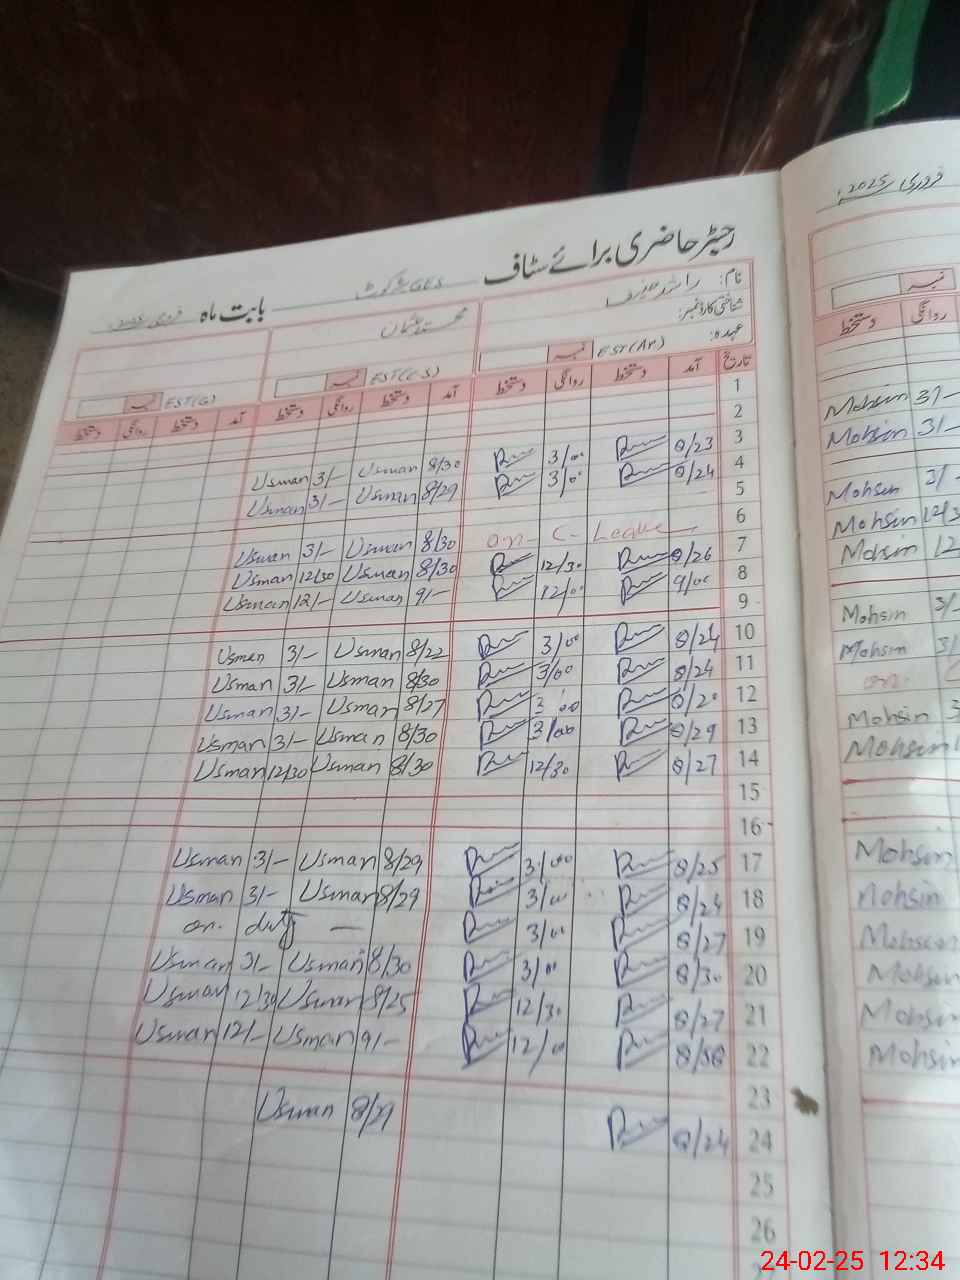 رجسٹر حاضری برائے سٹاف GES بابت ماہ فروری
فروری 2025ء
نام: راشد
شناختی کارڈ نمبر:
عہدہ:
محمد عثمان
نمبر EST(AR) نمبر EST(C.S) نمبر EST(G)
تاریخ آمد دستخط روانگی دستخط آمد دستخط روانگی دستخط آمد دستخط روانگی دستخط
نمبر
روانگی دستخط
1
2
3 8/23 3/00 8/30 Usman 3/- Usman
4 8/24 3/00 8/29 Usman 3/- Usman
5
6 on C-Leave 8/30 Usman 3/- Usman
7 8/26 12/30 8/30 Usman 12/30 Usman
8 9/00 12/00 9/- Usman 12/- Usman
9
10 8/24 3/00 8/22 Usman 3/- Usman
11 8/24 3/00 8/30 Usman 3/- Usman
12 8/20 3/00 8/27 Usman 3/- Usman
13 8/29 3/00 8/30 Usman 3/- Usman
14 8/27 12/30 8/30 Usman 12/30 Usman
15
16
17 8/25 3/00 8/29 Usman 3/- Usman
18 8/24 3/00 8/29 Usman 3/- Usman
19 8/27 3/00 on duty —
20 8/30 3/00 8/30 Usman 3/- Usman
21 8/27 12/30 8/25 Usman 12/30 Usman
22 12/00 9/- Usman 12/- Usman
23
24 8/24 8/29 Usman
25
26
Mohsin 3/-
Mohsin 3/-
Mohsin 3/-
Mohsin
Mohsin 12
Mohsin 3/-
Mohsin 3/
on
Mohsin 3
Mohsin
Mohsin
Mohsin
Mohsin
Mohsin
Mohsin
Mohsin
24-02-25 12:34